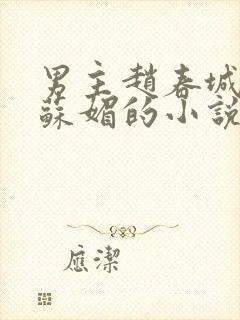 男主趙春城
蘇媚的小說
應潔